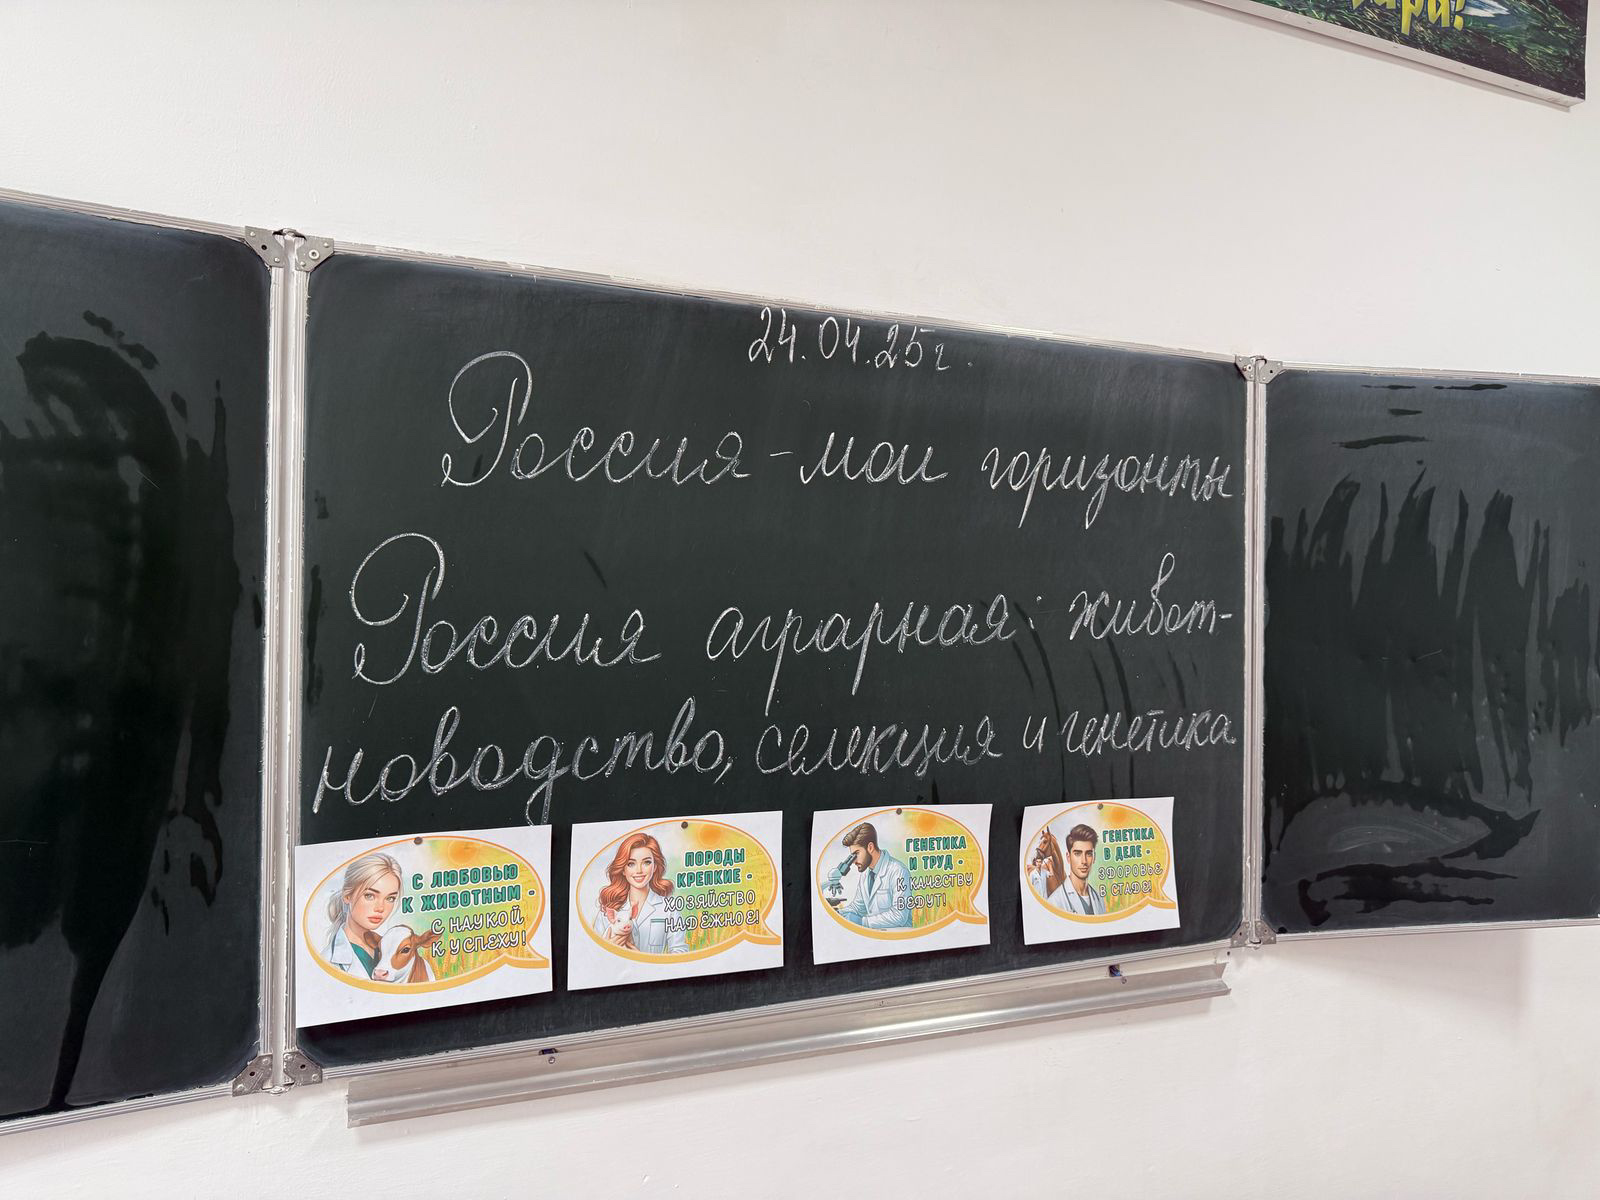 24.04.25г.
Россия - мои горизонты
Россия аграрная: живот-
новодство, селекция и генетика
С ЛЮБОВЬЮ
К ЖИВОТНЫМ -
С НАУКОЙ
К УСПЕХУ!
ПОРОДЫ
КРЕПКИЕ -
ХОЗЯЙСТВО
НАДЁЖНОЕ!
ГЕНЕТИКА
И ТРУД -
К КАЧЕСТВУ
ВЕДУТ!
ГЕНЕТИКА
В ДЕЛЕ -
ЗДОРОВЬЕ
В СТАДЕ!